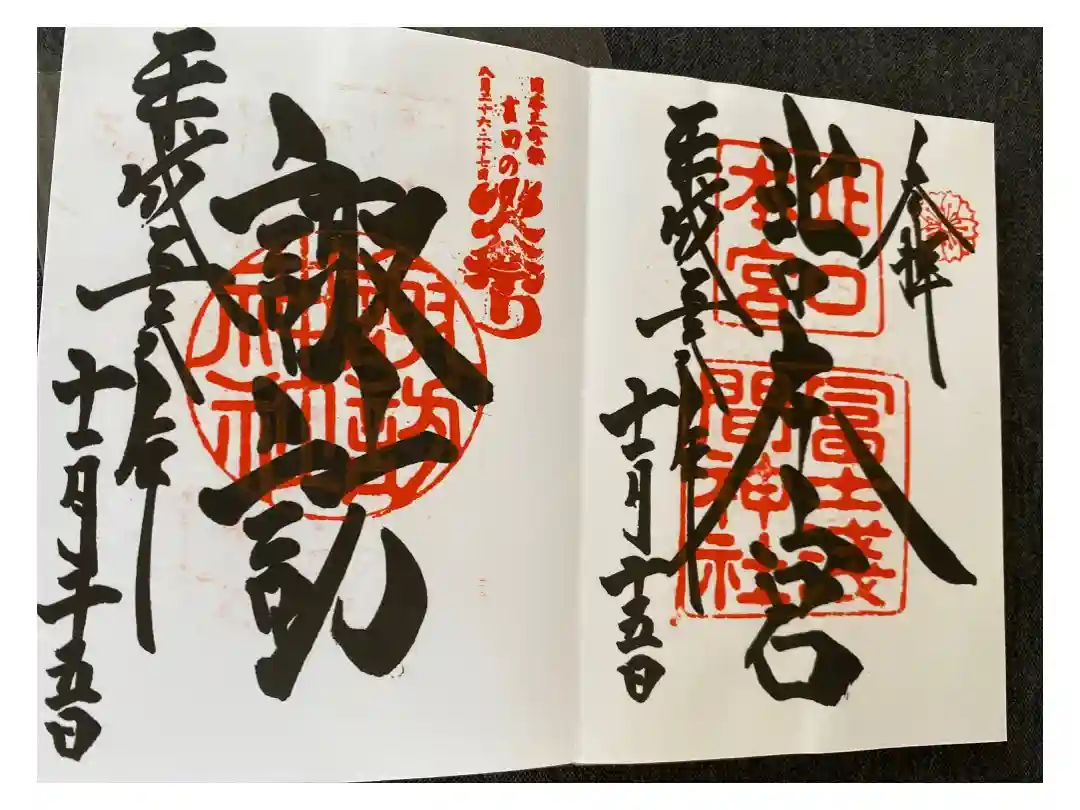 奉拝
北口本宮
北口
本宮
冨士淺
間神社
平成
年
十一月十五日
日本三奇祭
吉田の
火祭り
八月二十六・二十七日
諏訪
諏訪
神社
平成
年
十一月十五日